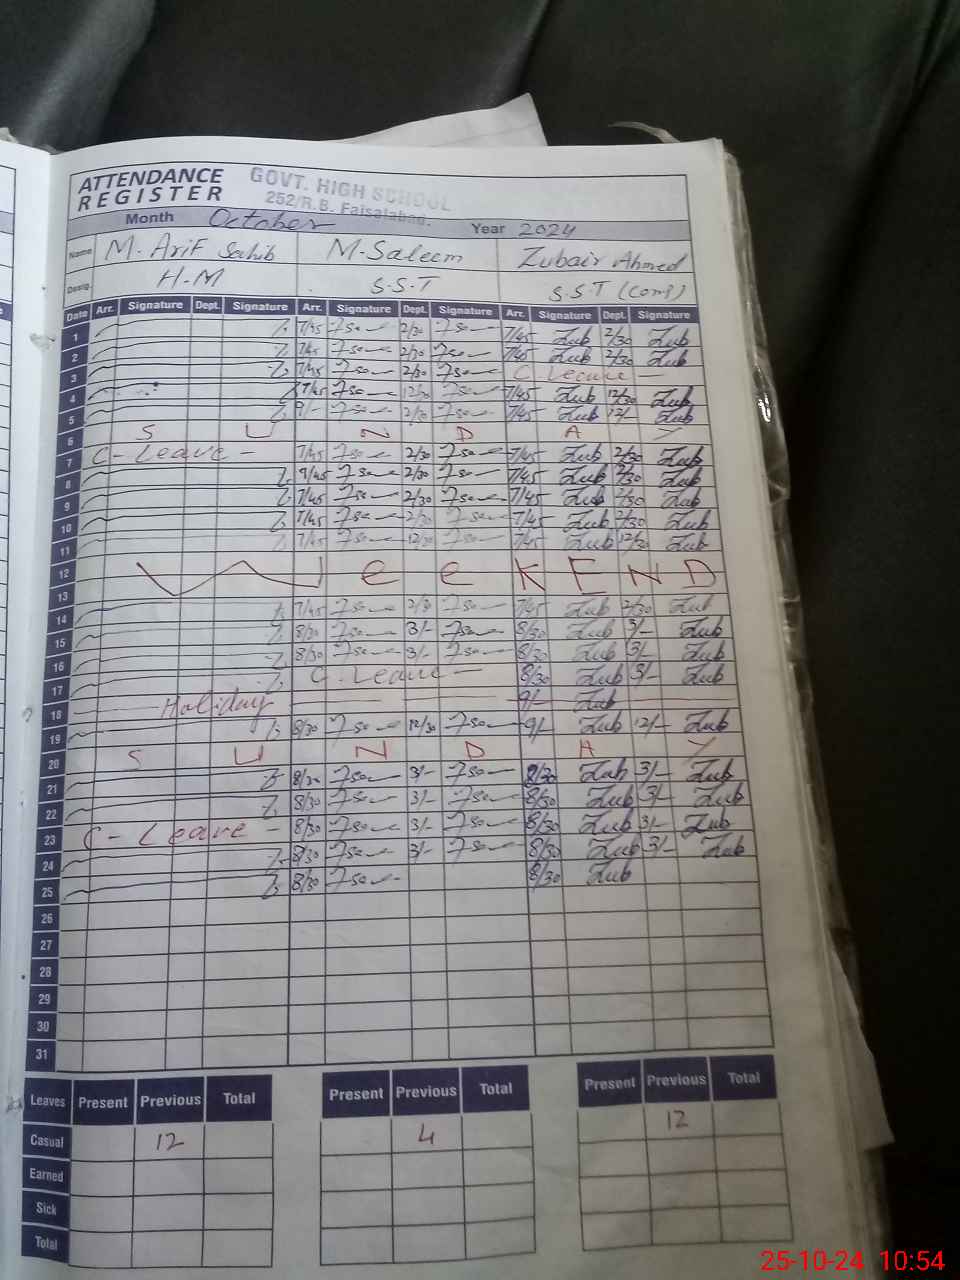 ATTENDANCE REGISTER
GOVT. HIGH SCHOOL
252/R.B. Faisalabad.
Month October Year 2024
Name M. Arif Sahib M. Saleem Zubair Ahmed
Desig. H-M S.S.T S.S.T (Comp)
Date Arr. Signature Dept. Signature Arr. Signature Dept. Signature Arr. Signature Dept. Signature
1 7/45 2/30 7/45 Zub 2/30 Zub
2 7/45 2/30 7/45 Zub 2/30 Zub
3 7/45 2/30 C Leave -
4 7/45 12/30 7/45 Zub 12/30 Zub
5 2/30 7/45 Zub 12/- Zub
6 S U N D A Y
7 C- Leave - 7/45 2/30 7/45 Zub 2/30 Zub
8 2/30 7/45 Zub 2/30 Zub
9 7/45 2/30 7/45 Zub 2/30 Zub
10 7/45 2/30 7/45 Zub 2/30 Zub
11 7/45 12/30 7/45 Zub 12/30 Zub
12 W e e K E N D
13
14 7/45 2/30 7/45 Zub 2/30 Zub
15 8/30 3/- 8/30 Zub 3/- Zub
16 8/30 3/- 8/30 Zub 3/- Zub
17 C-Leave - 8/30 Zub 3/- Zub
18 Holiday 9/- Zub
19 8/30 12/30 9/- Zub 12/- Zub
20 S U N D A Y
21 8/30 3/- 8/30 Zub 3/- Zub
22 8/30 3/- 8/30 Zub 3/- Zub
23 C- Leave - 8/30 3/- 8/30 Zub 3/- Zub
24 8/30 3/- 8/30 Zub 3/- Zub
25 8/30 8/30 Zub
26
27
28
29
30
31
Leaves Present Previous Total Present Previous Total Present Previous Total
Casual 12 4 12
Earned
Sick
Total
25-10-24 10:54